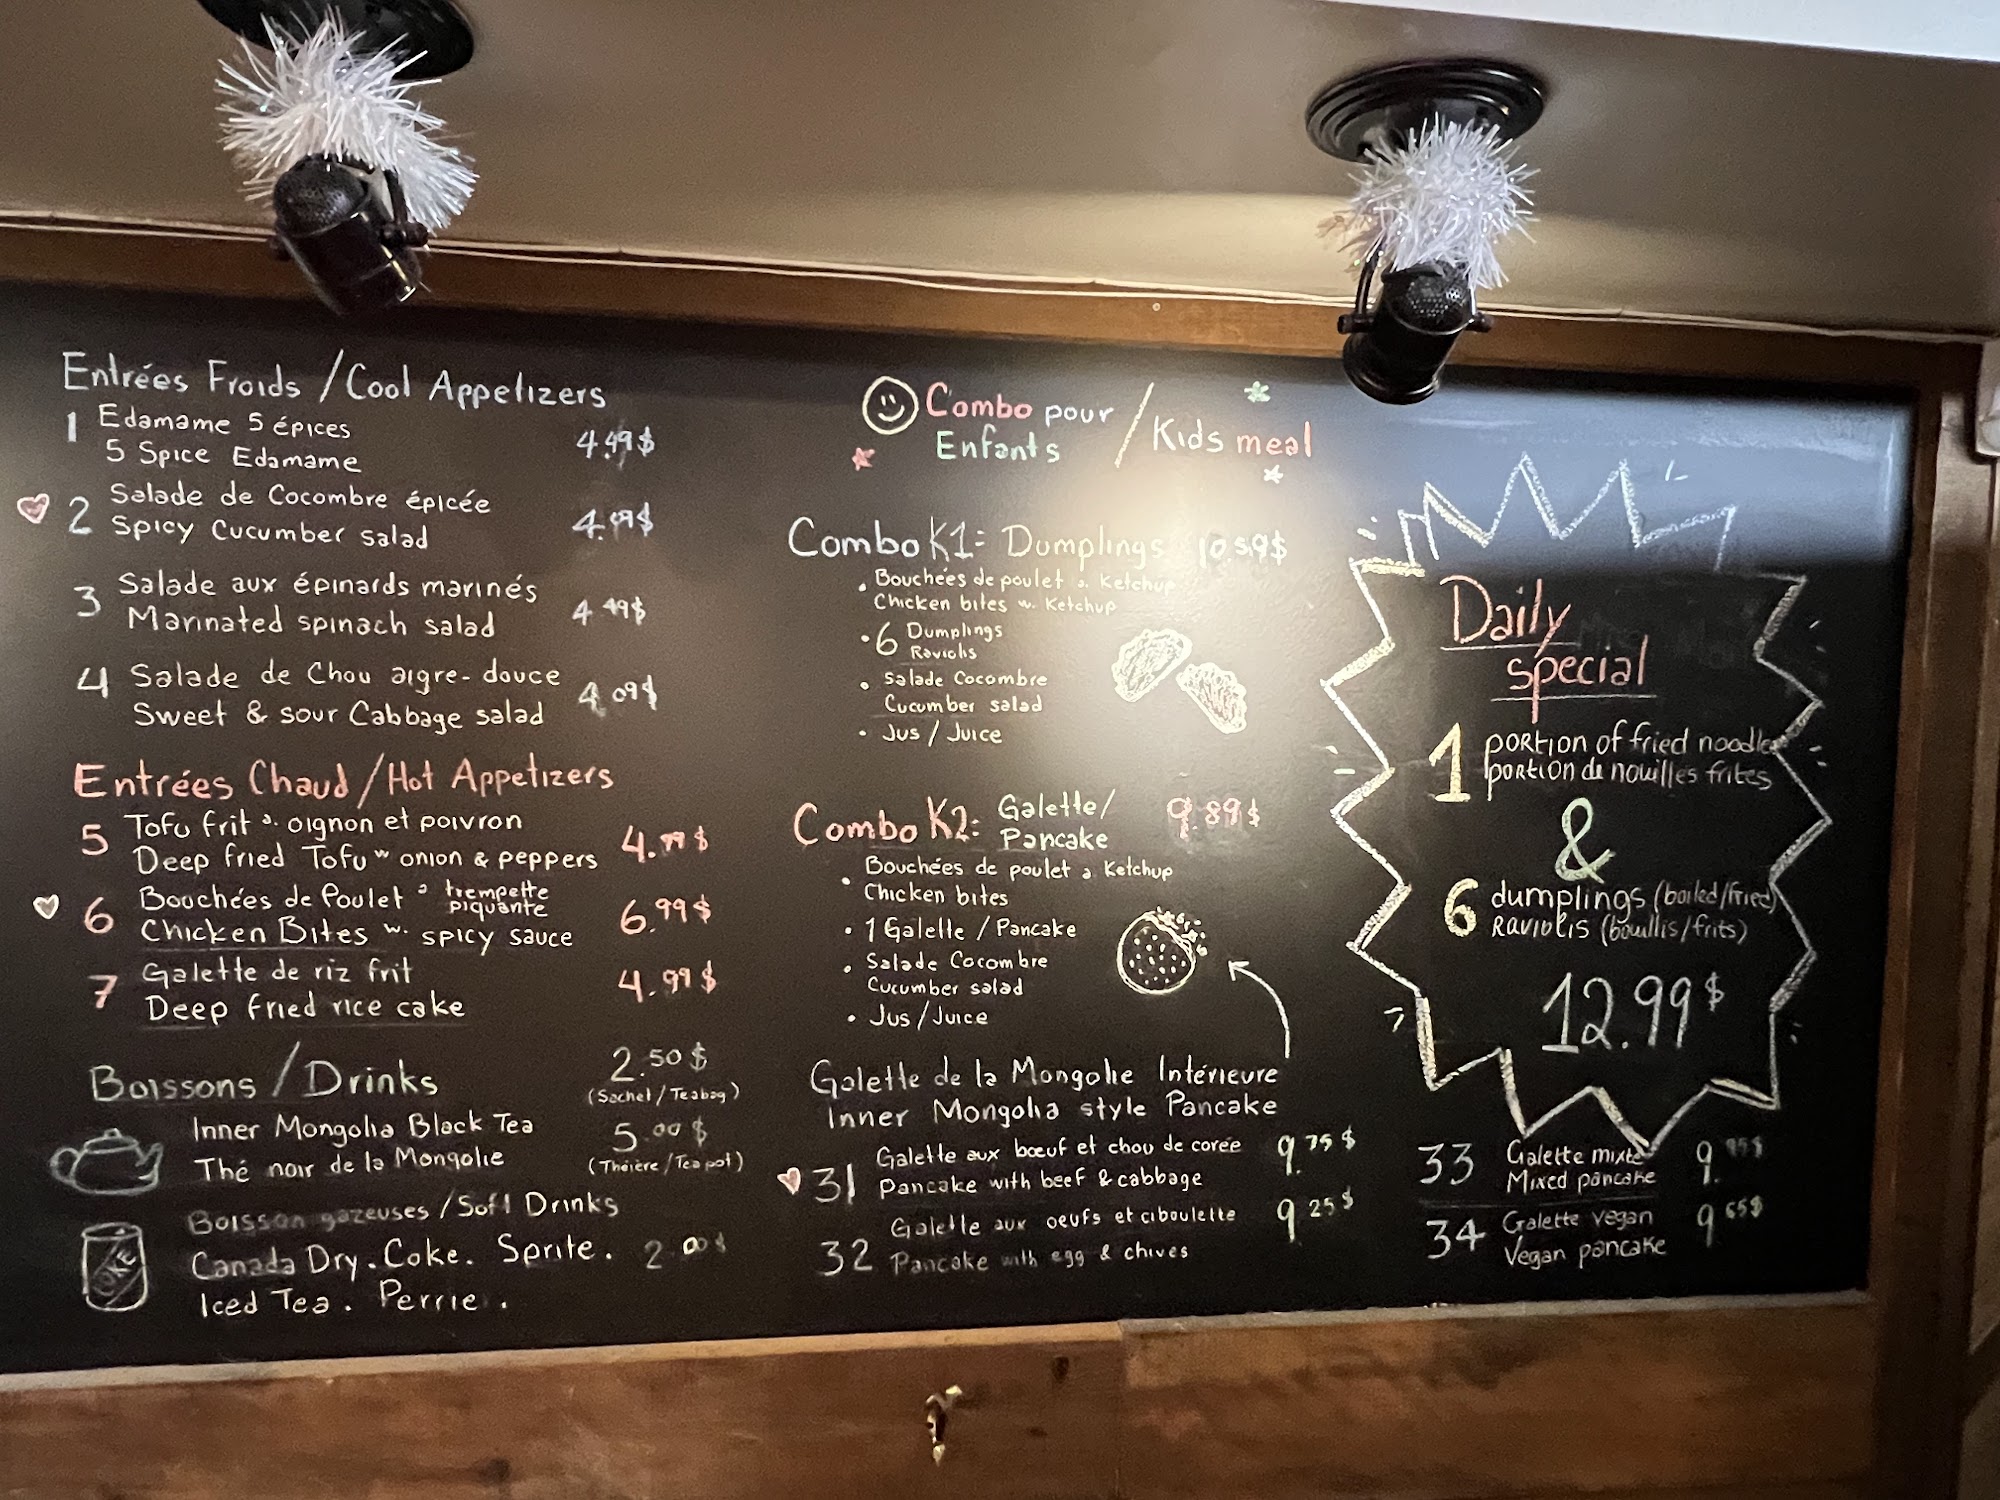 Entrées Froids / Cool Appetizers
1 Edamame 5 épices
5 Spice Edamame 4.49$
2 Salade de Cocombre épicée
Spicy Cucumber salad
3 Salade aux épinards marinés
Marinated spinach salad 4.49$
4 Salade de Chou aigre-douce
Sweet & sour Cabbage salad 4.09$
Entrées Chaud / Hot Appetizers
5 Tofu frit a. oignon et poivron
Deep fried Tofu w onion & peppers 4.99$
6 Bouchées de Poulet a trempette piquante
Chicken Bites w. spicy sauce 6.99$
7 Galette de riz frit
Deep fried rice cake 4.99$
Boissons / Drinks
2.50$
(Sachet / Teabag)
Inner Mongolia Black Tea
Thé noir de la Mongolie
5.00$
(Théière / Teapot)
Boisson gazeuses / Soft Drinks
Canada Dry. Coke. Sprite. 2.00$
Iced Tea. Perrie.
COKE
Combo pour Enfants / Kids meal
Combo K1: Dumplings 10.59$
• Bouchées de poulet a. Ketchup
Chicken bites w. Ketchup
• 6 Dumplings
Raviolis
• Salade Cocombre
Cucumber salad
• Jus / Juice
Combo K2: Galette/ Pancake 9.89$
• Bouchées de poulet a. Ketchup
Chicken bites
• 1 Galette / Pancake
• Salade Cocombre
Cucumber salad
• Jus / Juice
Galette de la Mongolie Intérieure
Inner Mongolia style Pancake
31 Galette aux bœuf et chou de corée
Pancake with beef & cabbage 9.75$
32 Galette aux oeufs et ciboulette
Pancake with egg & chives 9.25$
Daily
special
1 portion of fried noodles
portion de nouilles frites
&
6 dumplings (boiled/fried)
Raviolis (bouillis/frits)
12.99$
33 Galette mixte
Mixed pancake 9.95$
34 Galette vegan
Vegan pancake 9.65$